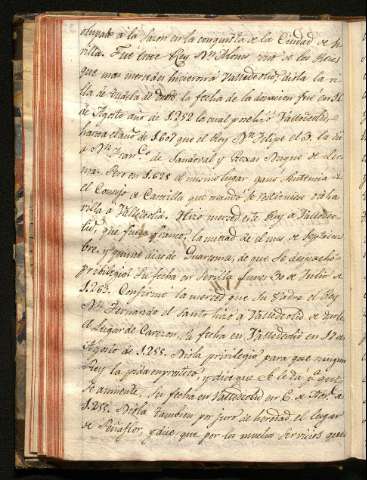 a la sazon en la conquista de la Ciudad de Se
villa. Fue este Rey Dn. Alonso uno de los Reies
que mas mercedes hicieron à Valladolid; diola la vi
lla de Tudela de Duero, la fecha de la donacion fue en 21
de Agosto año de 1252 lo cual posehió Valladolid
hasta el año de 1607 que el Rey Dn. Felipe el 3. la dio
a Dn. Franco. de Sandoval y Roxas Duque de Ler
ma. Pero en 1628 el mismo lugar gano Sentencia de
el Consejo de Castilla que mandó se restituiese dicha
villa à Valladolid. Hizo merced este Rey à Vallado
lid, que fuese franco, la mitad de el mes de Septiem
bre, y quince dias de Quaresma, de que se despachó
privilegio. Su fecha en Sevilla Lunes 30 de Julio de
1263. Confirmó la merced que su Padre el Rey
Dn. Fernando el Santo hizo à Valladolid de
el Lugar de Cavezon. Su fecha en Valladolid en 12 de
Agosto de 1255. Diola privilegio para que ningun
Rey la pida emprestito, y dice que se le da
de Su fecha en Valladolid en 6 de Novr. de
1255. Diola tambien por juro de heredad el lugar
de Peñaflor, y dice que por los muchos servicios que